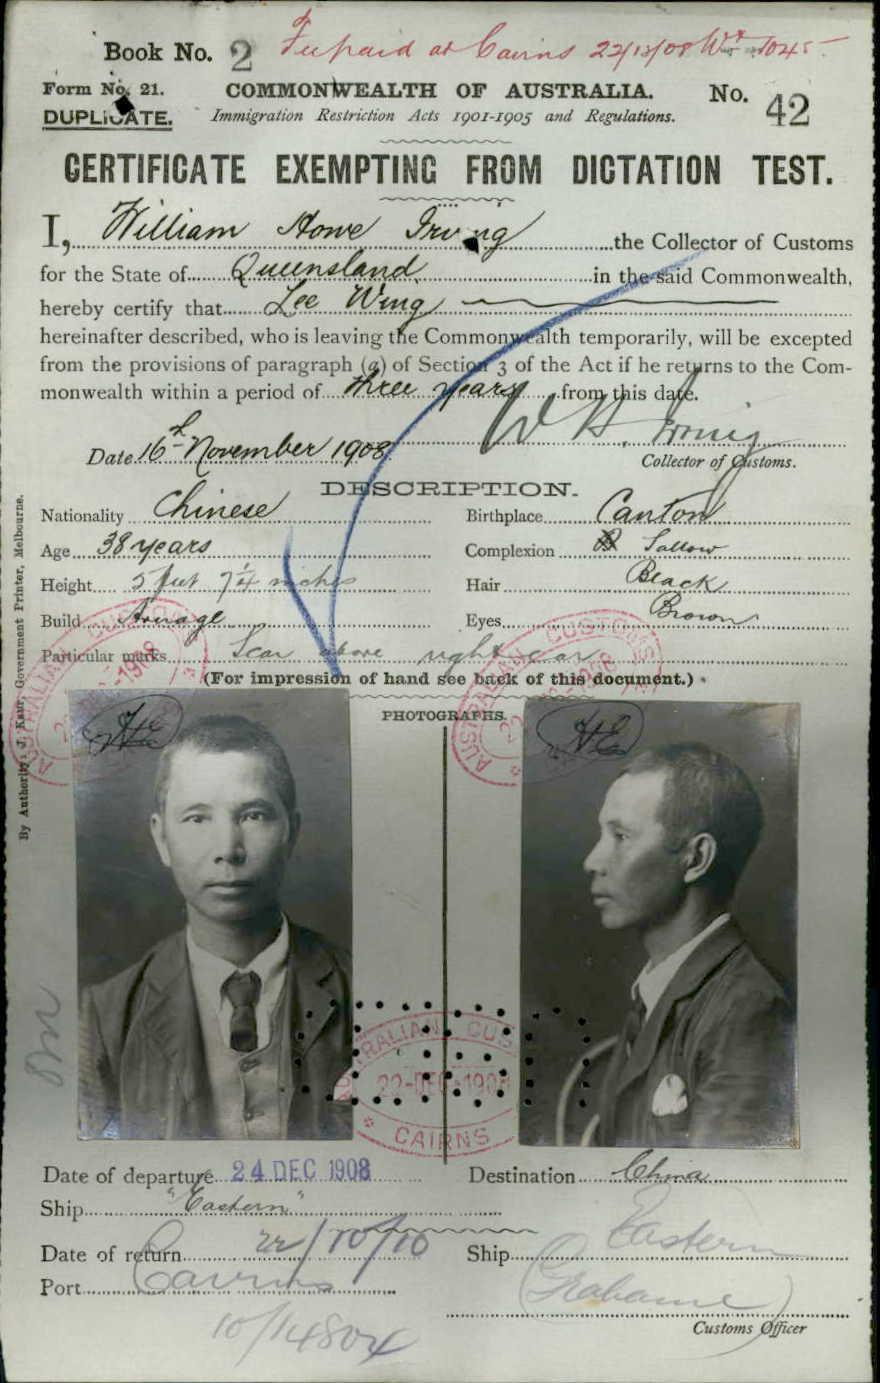 Book No. 2 Fee paid at Cairns 22/12/08
Form No. 21. COMMONWEALTH OF AUSTRALIA. No. 42
DUPLICATE. Immigration Restriction Acts 1901-1905 and Regulations.
CERTIFICATE EXEMPTING FROM DICTATION TEST.
I, William Howe Irving the Collector of Customs
for the State of Queensland in the said Commonwealth,
hereby certify that Lee Wing
hereinafter described, who is leaving the Commonwealth temporarily, will be excepted
from the provisions of paragraph (a) of Section 3 of the Act if he returns to the Com-
monwealth within a period of three years from this date.
W H. Irving
Date 16th November 1908 Collector of Customs.
DESCRIPTION.
Nationality Chinese Birthplace Canton
Age 38 years Complexion Sallow
Height 5 feet 7¼ inches Hair Black
Build Average Eyes Brown
Particular marks Scar above right ear
(For impression of hand see back of this document.)
PHOTOGRAPHS.
AUSTRALIAN CUSTOMS
AUSTRALIAN CUSTOMS
By Authority: J. Kemp, Government Printer, Melbourne.
AUSTRALIAN CUS
22-DEC-1908
CAIRNS
Date of departure 24 DEC 1908 Destination China
Ship "Eastern"
Date of return 22/10/10 Ship Eastern
Port Cairns
Customs Officer
10/14804